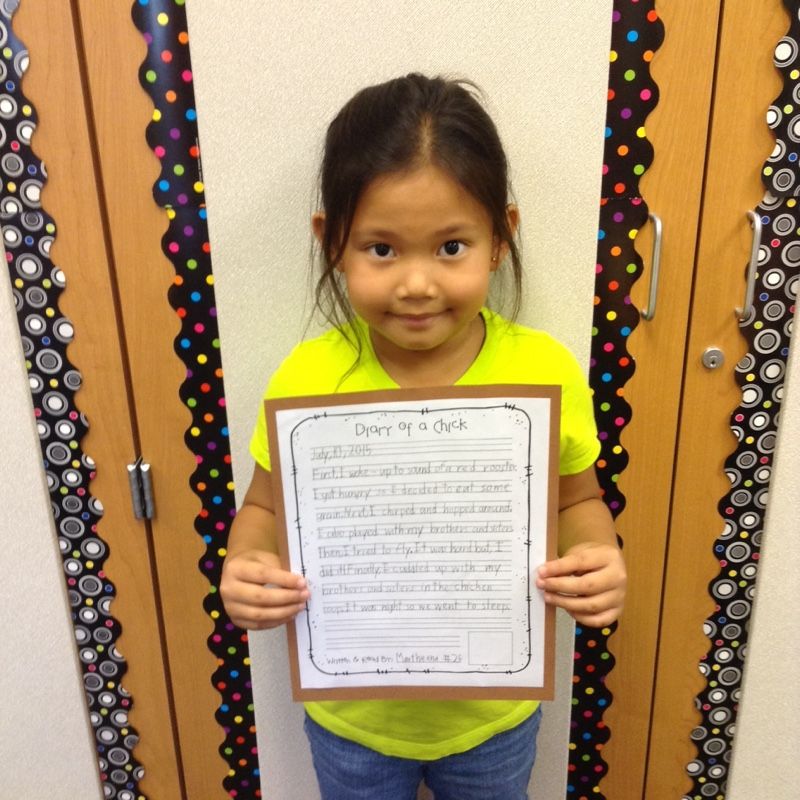 Diary of a Chick
July, 17, 2015
First, I woke-up to sound of a red rooster.
I got hungry so I decided to eat some
grain. Next, I chirped and hopped around.
I also played with my brothers and sisters.
Then, I tried to fly. It was hard but, I
did it! Finally, I cuddled up with my
brothers and sisters in the chicken
coop. It was night so we went to sleep.
Written & Read By: #26